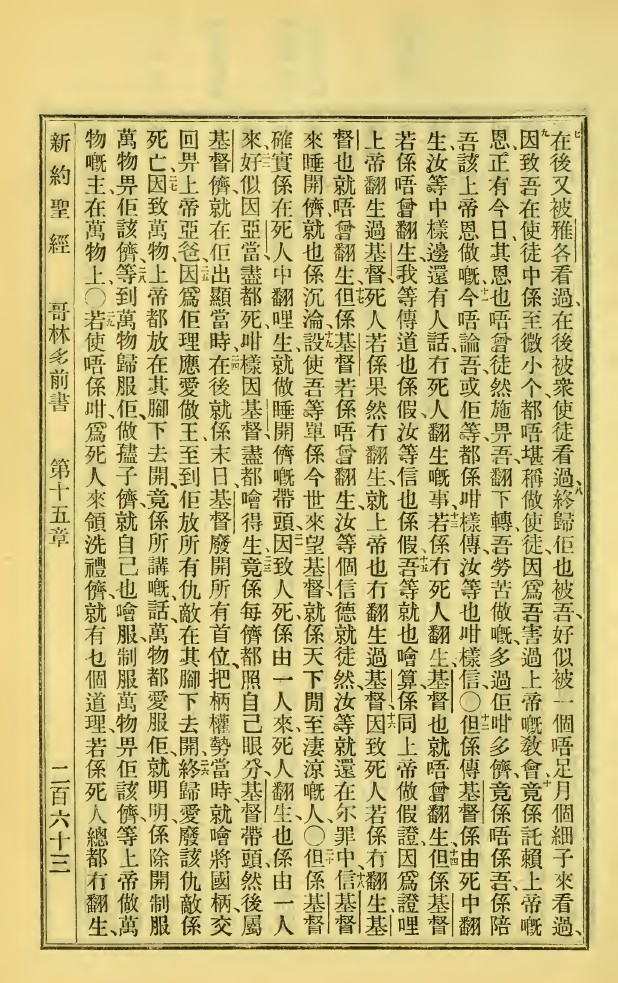 七在後又被雅各看過、在後被衆使徒看過、八終歸佢也被吾、好似被一個唔足月個細子來看過、
九因致吾在使徒中係至微小个、都唔堪稱做使徒、因爲吾害過上帝嘅教會、十竟係託賴上帝嘅
恩、正有今日、其恩也唔曾徒然施畀吾、翻下轉、吾勞苦做嘅、多過佢咁多儕、竟係唔係吾、係陪
吾該上帝恩做嘅、十一今唔論吾或佢等、都係咁樣傳、汝等也咁樣信、〇十二但係傳基督係由死中翻
生、汝等中樣邊還有人話冇死人翻生嘅事、十三若係冇死人翻生、基督也就唔曾翻生、十四但係基督
若係唔曾翻生、我等傳道也係假、汝等信也係假、十五吾等就也噲算係同上帝做假證、因爲證哩
上帝翻生過基督、死人若係果然冇翻生、就上帝也冇翻生過基督、十六因致死人若係冇翻生、基
督也就唔曾翻生、十七但係基督若係唔曾翻生、汝等個信德就徒然、汝等就還在尔罪中、十八信基督
來睡開儕、就也係沉淪、十九設使吾等單係今世來望基督、就係天下閒至凄涼嘅人、〇二十但係基督
確實係在死人中翻哩生、就做睡開儕嘅帶頭、二一因致人死係由一人來、死人翻生也係由一人
來、二二好似因亞當盡都死、咁樣因基督盡都噲得生、二三竟係每儕都照自己眼分、基督帶頭、然後屬
基督儕就在佢出顯當時、二四在後就係末日、基督廢開所有首位、把柄、權勢、當時就噲將國柄交
回畀上帝亞爸、二五因爲佢理應愛做王、至到佢放所有仇敵在其腳下去、二六開終歸愛廢該仇敵係
死亡、二七因致萬物上帝都放在其腳下去開、竟係所講嘅話、萬物都愛服佢、就明明係除開制服
萬物畀佢該儕、二八等到萬物歸服佢、做孻子儕就自己也噲服制服萬物畀佢該儕、等上帝做萬
物嘅主、在萬物上、〇二九若使唔係咁、爲死人來領洗禮儕、就有乜個道理、若係死人總都冇翻生、
新約聖經 哥林多前書 第十五章 二百六十三